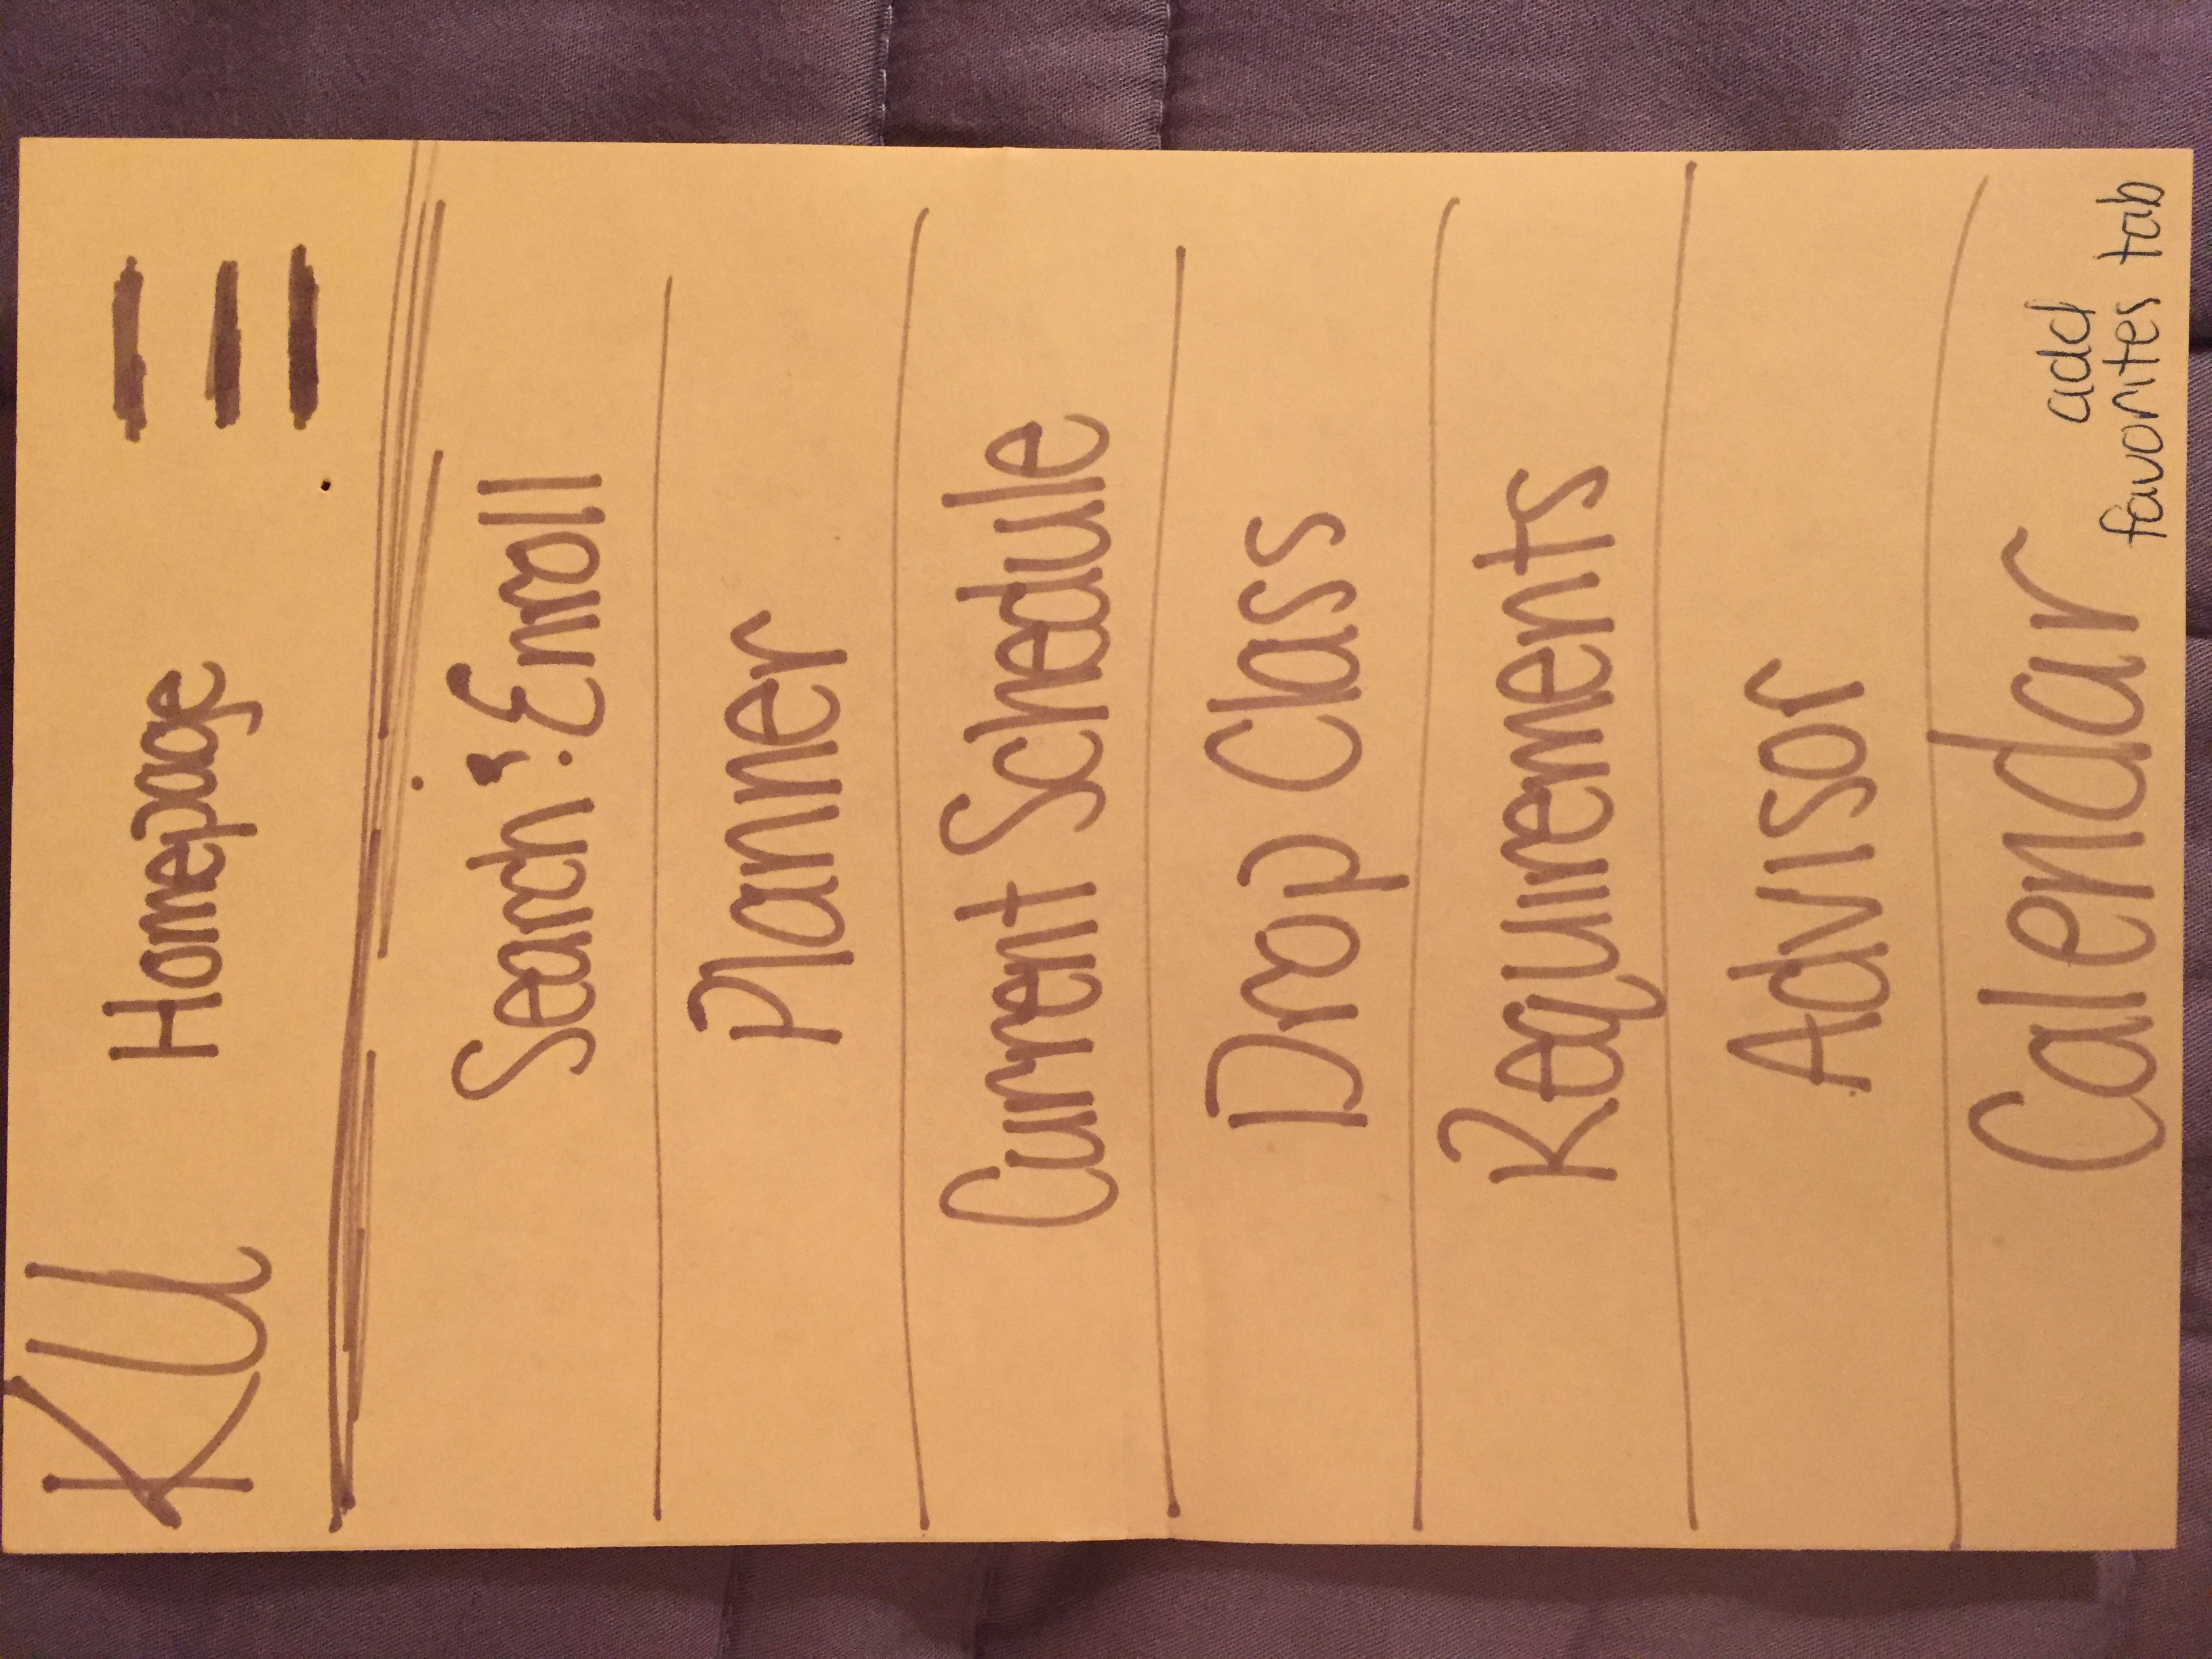 KU Homepage
Search & Enroll
Planner
Current Schedule
Drop Class
Requirements
Advisor
Calendar
add
favorites tab